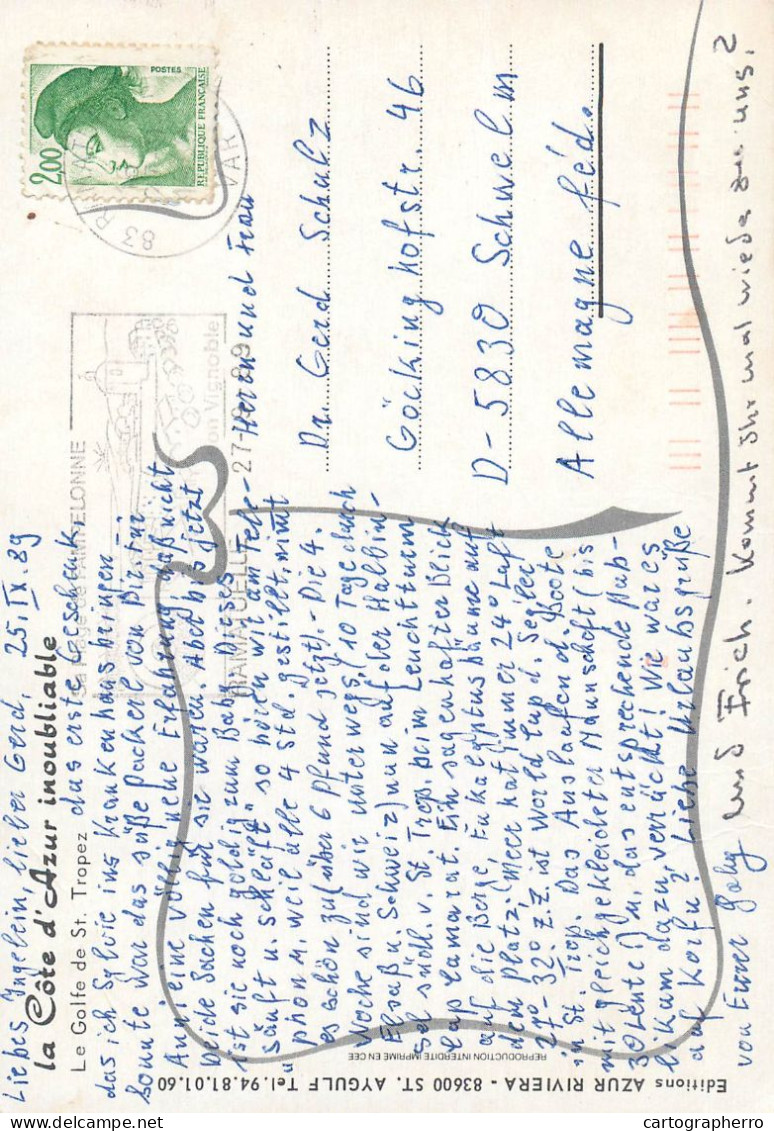 Liebes Ingelein, lieber Gerd, 25. IX. 89
la Côte d'Azur inoubliable
Le Golfe de St. Tropez
das erste Geschenk,
das ich Sylvie ins Krankenhaus bringen
konnte war das süße Packerl von Dir für
Anni eine völlig neue Erfahrung, daß nicht
beide Sachen für sie waren. Aber bis jetzt
ist sie noch goldig zum Baby. Dieses
"säuft u. schläft" so hören wir am Tele-
phon u. weil alle 4 Std. gestillt, nimmt
es schön zu (über 6 Pfund jetzt). - Die 4.
Woche sind wir unterwegs, (10 Tage durch
Elsaß u. Schweiz) nun auf der Halbin-
sel südl. v. St. Trop. beim Leuchtturm
Cap Camarat. Ein sagenhafter Blick
auf die Berge. Eukalyptusbäume auf
dem Platz. (Meer hat immer 24° Luft
27°-32°. z.Z. ist World Cup d. Segler
in St. Trop. Das Auslaufen d. Boote
mit gleichgekleideter Mannschaft (bis
30 Leute) u. das entsprechende Pub-
likum dazu, verrückt! Wie war es
auf Korfu? Liebe Urlaubsgrüße
von Eurer Gaby und Erich. Kommt Ihr mal wieder zu uns?
Editions AZUR RIVIERA - 83600 ST. AYGULF Tel. 94.81.01.60
REPRODUCTION INTERDITE IMPRIME EN CEE
2,00
POSTES
REPUBLIQUE FRANÇAISE
VAR
PAMPELONNE
son Vignoble
RAMATUELLE
Herrn und Frau
Dr. Gerd Schulz
Göckinghofstr. 46
D-5830 Schwelm
Allemagne féd.
cartographerro